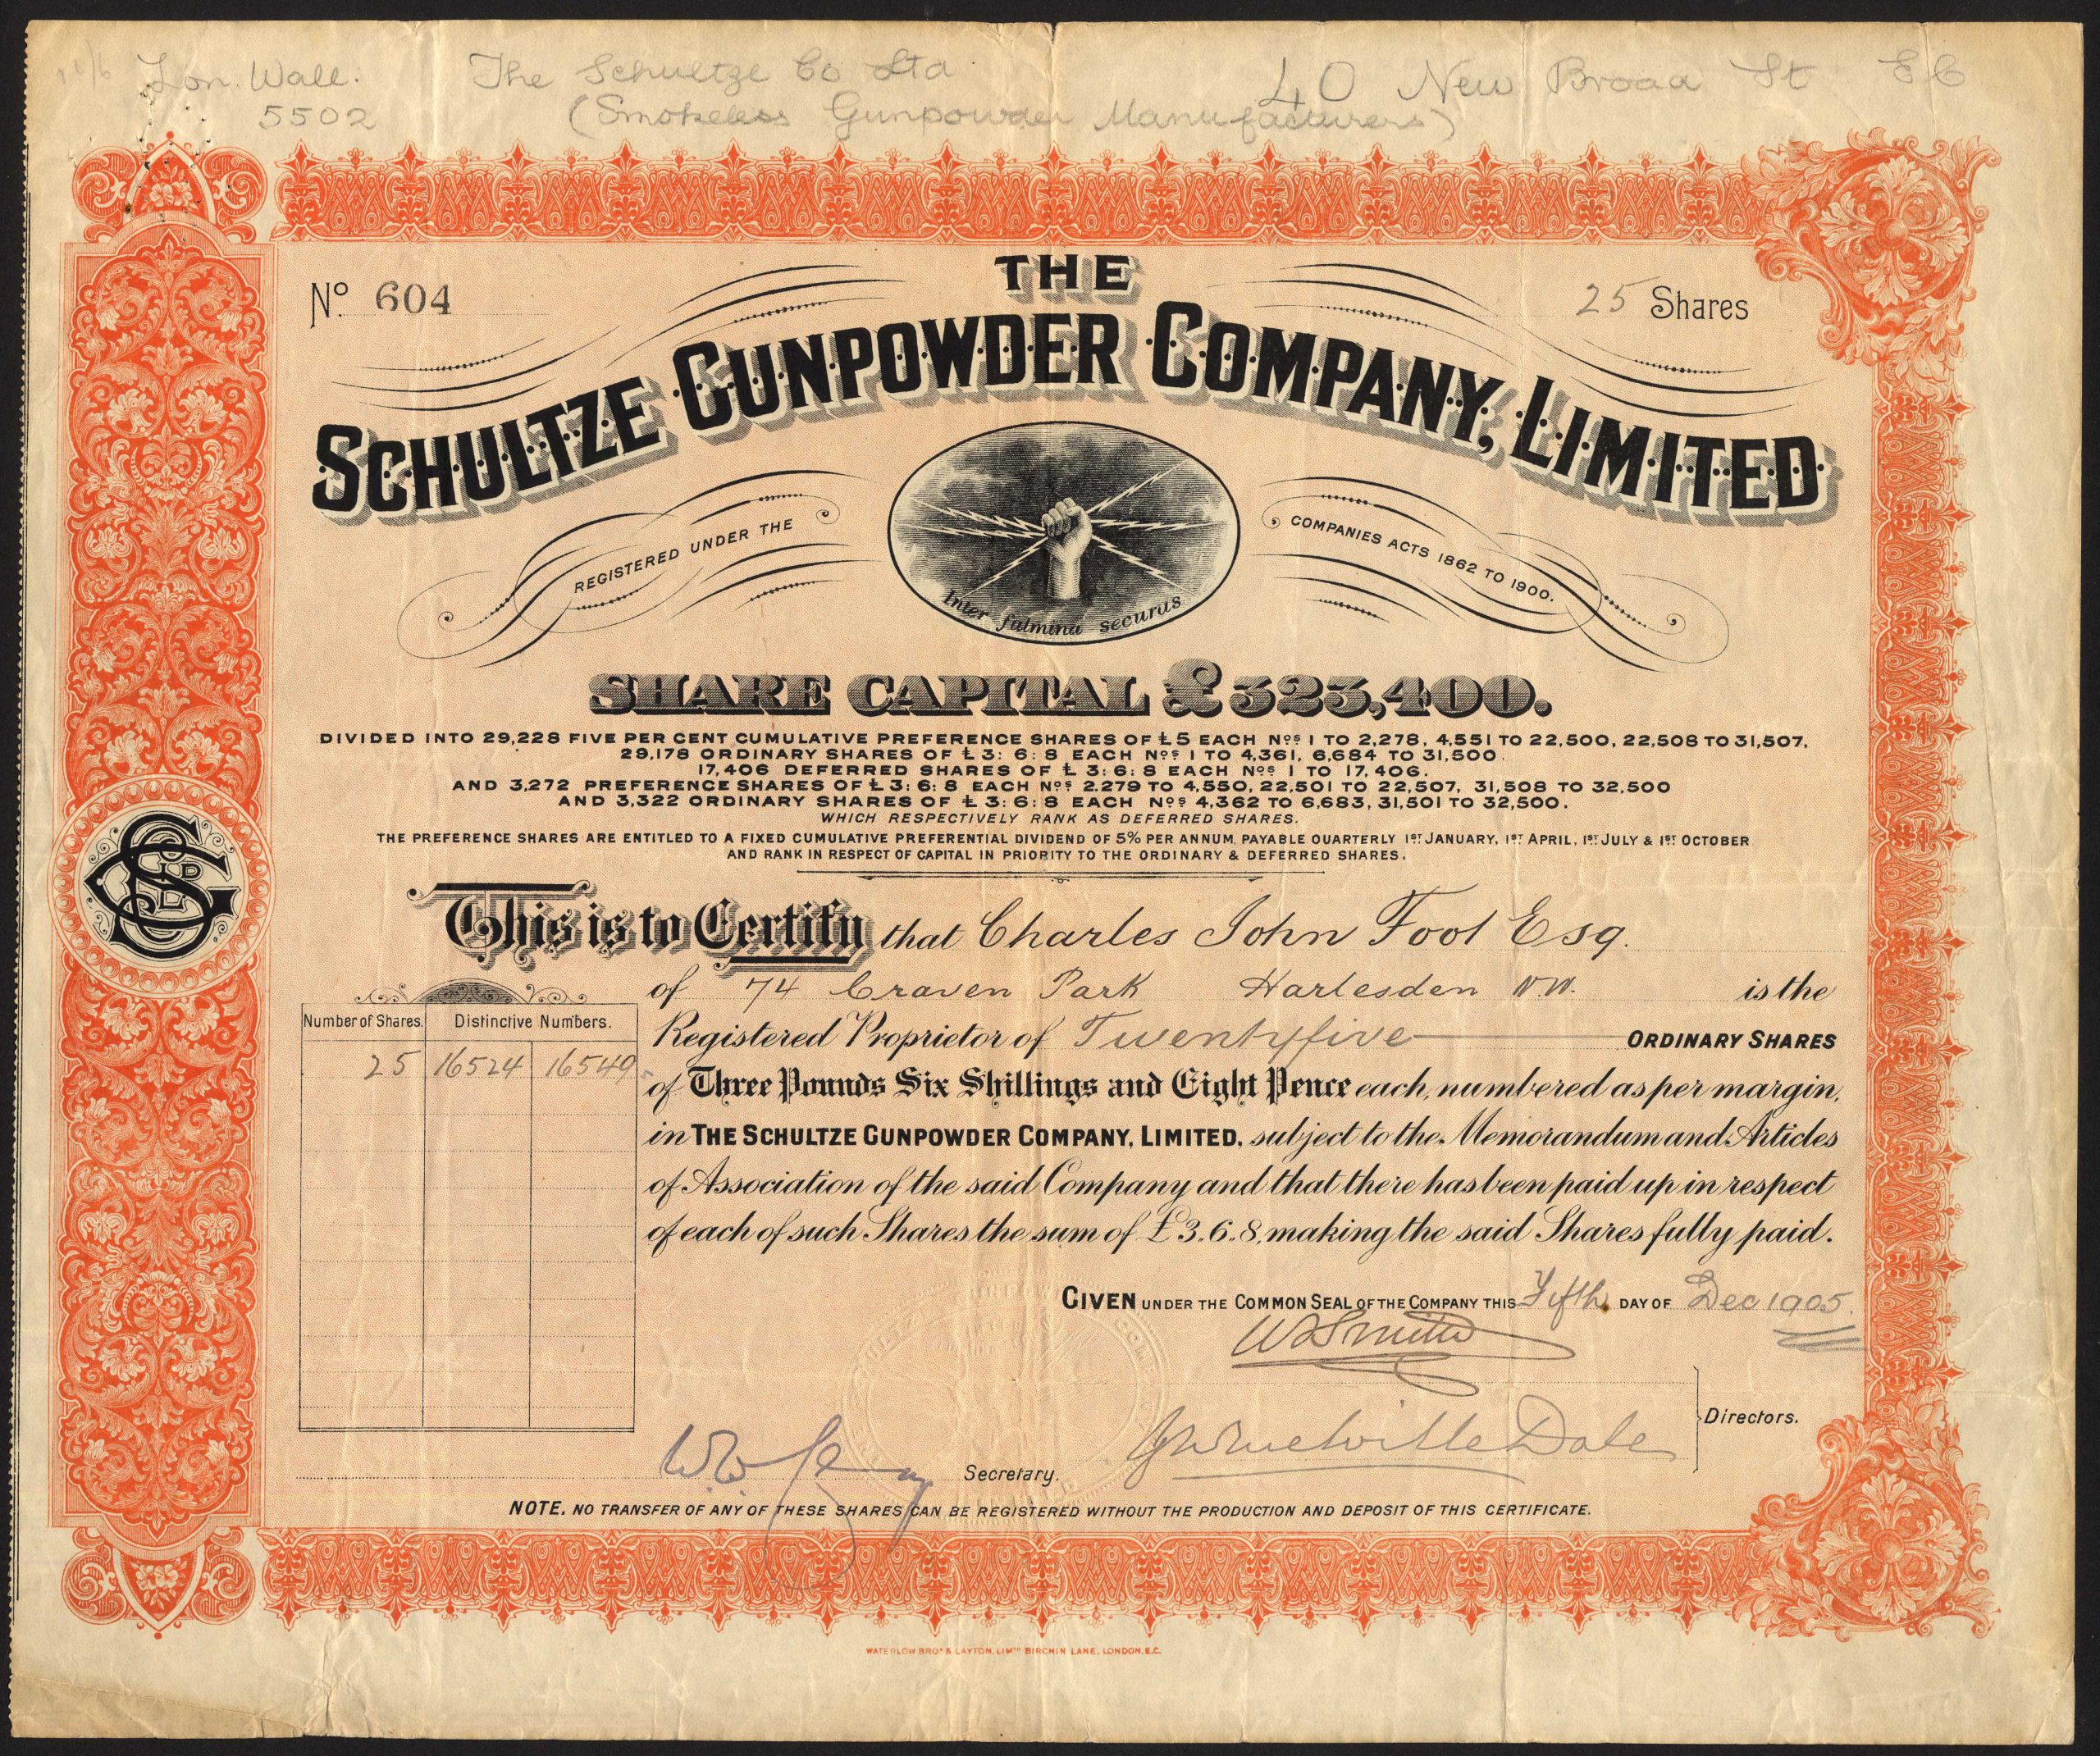 Lon. Wall. The Schultze Co Ltd 40 New Broad St EC
5502 (Smokeless Gunpowder Manufacturers)
No. 604
25 Shares
THE
SCHULTZE GUNPOWDER COMPANY, LIMITED
REGISTERED UNDER THE COMPANIES ACTS 1862 TO 1900.
Inter fulmina securus
SHARE CAPITAL £323,400.
DIVIDED INTO 29,228 FIVE PER CENT CUMULATIVE PREFERENCE SHARES OF £5 EACH Nos 1 TO 2,278, 4,551 TO 22,500, 22,508 TO 31,507,
29,178 ORDINARY SHARES OF £3:6:8 EACH Nos 1 TO 4,361, 6,684 TO 31,500.
17,406 DEFERRED SHARES OF £3:6:8 EACH Nos 1 TO 17,406.
AND 3,272 PREFERENCE SHARES OF £3:6:8 EACH Nos 2,279 TO 4,550, 22,501 TO 22,507, 31,508 TO 32,500
AND 3,322 ORDINARY SHARES OF £3:6:8 EACH Nos 4,362 TO 6,683, 31,501 TO 32,500.
WHICH RESPECTIVELY RANK AS DEFERRED SHARES.
THE PREFERENCE SHARES ARE ENTITLED TO A FIXED CUMULATIVE PREFERENTIAL DIVIDEND OF 5% PER ANNUM, PAYABLE QUARTERLY 1ST JANUARY, 1ST APRIL, 1ST JULY & 1ST OCTOBER
AND RANK IN RESPECT OF CAPITAL IN PRIORITY TO THE ORDINARY & DEFERRED SHARES.
This is to Certify that Charles John Foot Esq.
of 74 Craven Park Harlesden N.W. is the
Registered Proprietor of Twentyfive ORDINARY SHARES
of Three Pounds Six Shillings and Eight Pence each, numbered as per margin,
in THE SCHULTZE GUNPOWDER COMPANY, LIMITED, subject to the Memorandum and Articles
of Association of the said Company and that there has been paid up in respect
of each of such Shares the sum of £3.6.8, making the said Shares fully paid.
Number of Shares. Distinctive Numbers.
25 16524 16549
GIVEN UNDER THE COMMON SEAL OF THE COMPANY THIS Fifth DAY OF Dec 1905.
Smith
Melville Dale
Directors.
Secretary.
NOTE. NO TRANSFER OF ANY OF THESE SHARES CAN BE REGISTERED WITHOUT THE PRODUCTION AND DEPOSIT OF THIS CERTIFICATE.
WATERLOW BROS & LAYTON, LIMTD BIRCHIN LANE, LONDON, E.C.